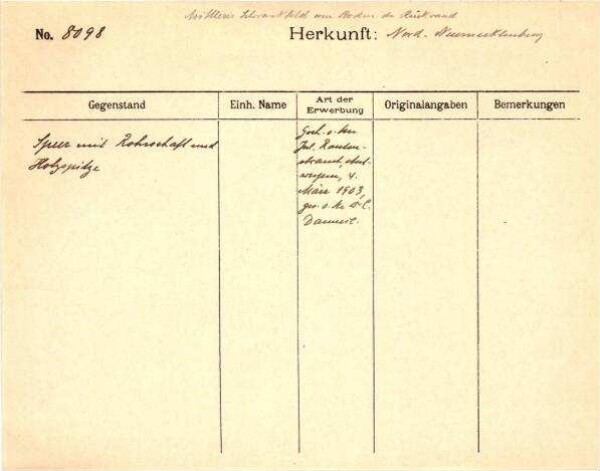 Mittleres Schrankfeld am Boden der Rückwand
No. 8098
Herkunft: Nord-Neumecklenburg
Gegenstand
Einh. Name
Art der
Erwerbung
Originalangaben
Bemerkungen
Speer mit Rohrschaft und
Holzspitze
Gesch. v. Hrn
Jul. Rauten-
strauch, Ant-
werpen, 4.
März 1903,
ges. v. Hr. C.